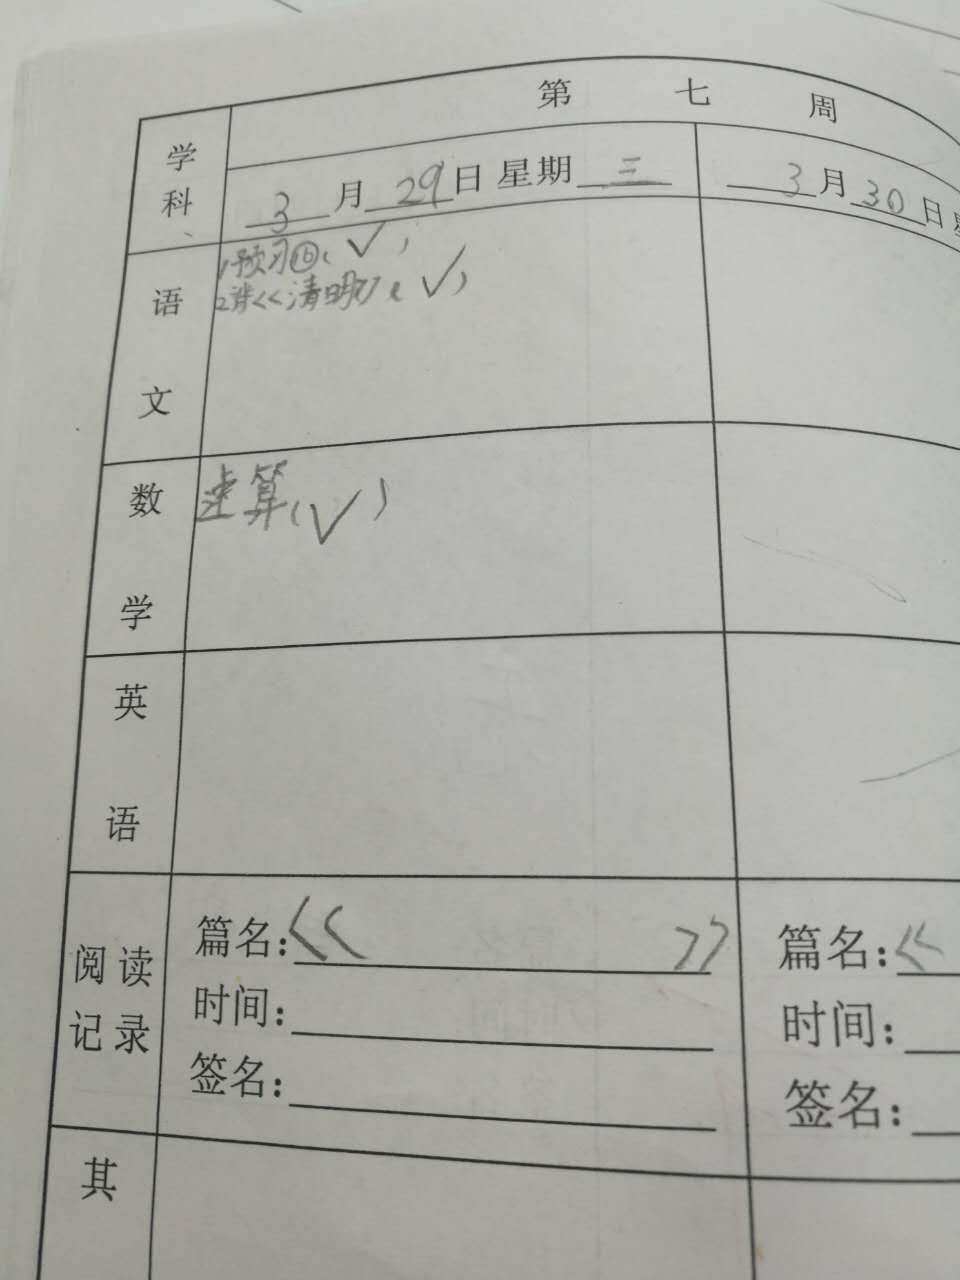 第 七 周
学科
3月29日 星期三
3月30日
语文
1预习⑯(✓)
2背<<清明>>(✓)
数学
速算(✓)
英语
阅读记录
篇名:<< >>
时间:
签名:
篇名:<<
时间:
签名:
其